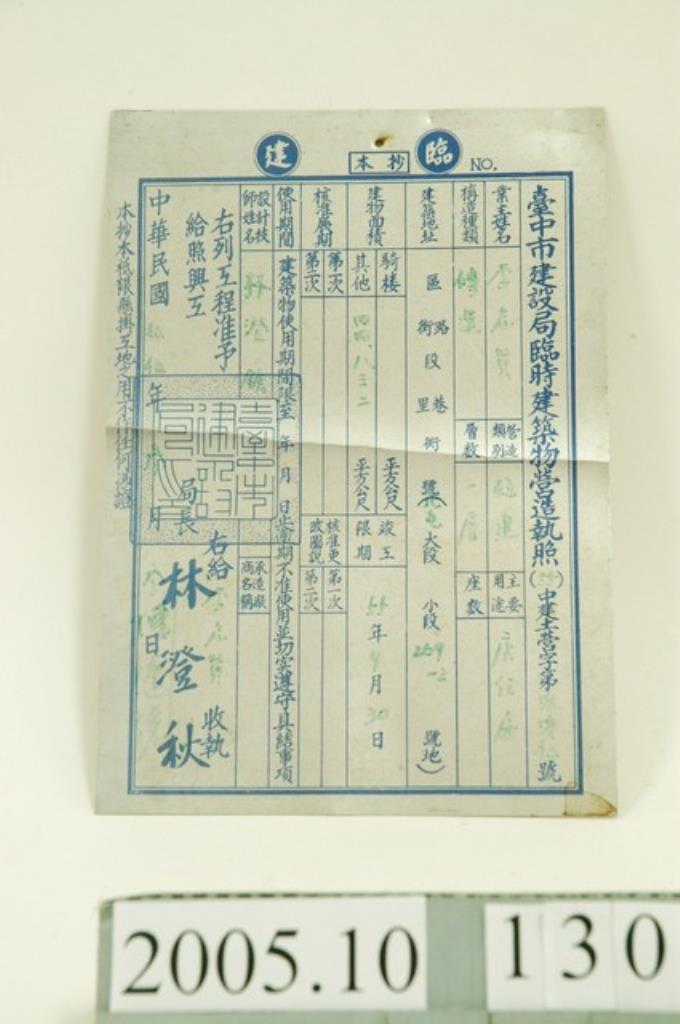 臨
抄本
建
NO.
臺中市建設局臨時建築物營造執照( )中建土營字第 號
業主姓名
營造類別
主要用途
構造種類 磚造
層數 一層
座數
建築地址 區 路街 段 巷里 街 號 大段 小段 269-2 號地)
建物面積 騎楼 平方公尺
其他 四四.八三二 平方公尺
竣工限期 44年9月30日
核准展期 第一次
第二次
核准更改圖説 第一次
第二次
使用期間 建築物使用期間限至 年 月 日止逾期不准使用並切实遵守具結事項
設計技師姓名
承造廠商名稱
右列工程准予
給照興工
右給 收執
局長 林澄秋
中華民國 年 月 日
本抄本祗限懸掛工地之用不作任何憑證
2005.10
130